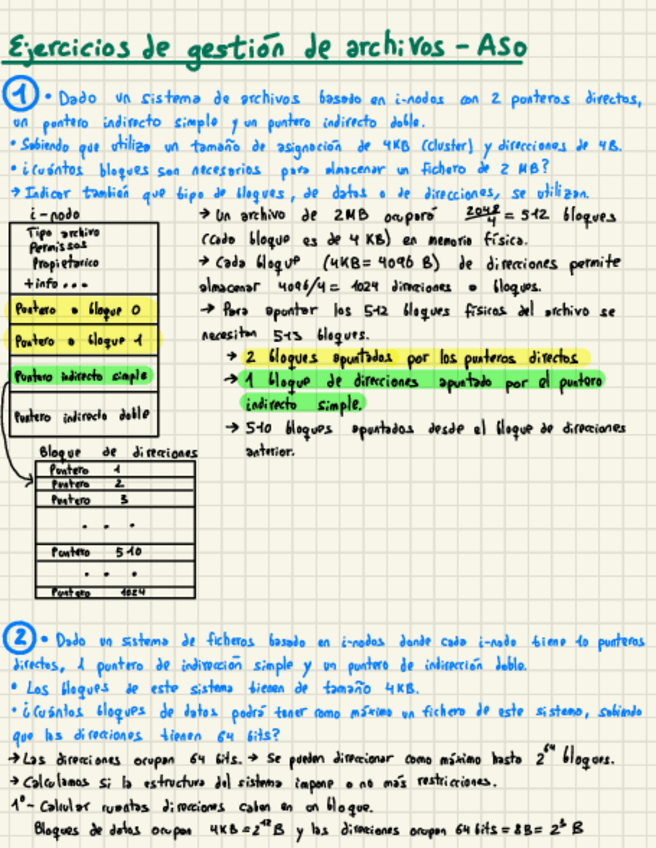 Ejercicios de gestión de archivos - ASO
1 • Dado un sistema de archivos basado en i-nodos con 2 punteros directos,
un puntero indirecto simple y un puntero indirecto doble.
• Sabiendo que utiliza un tamaño de asignación de 4KB (cluster) y direcciones de 4B.
• ¿Cuántos bloques son necesarios para almacenar un fichero de 2 MB?
→ Indicar también que tipo de bloques, de datos o de direcciones, se utilizan.
i-nodo
Tipo archivo
Permissos
Propietarico
+info...
Puntero a bloque 0
Puntero a bloque 1
Puntero indirecto simple
Puntero indirecto doble
Bloque de direcciones
Puntero 1
Puntero 2
Puntero 3
. . .
Puntero 510
. . .
Puntero 1024
→ Un archivo de 2MB ocupará 2048/4 = 512 bloques
(cada bloque es de 4 KB) en memoria física.
→ Cada bloque (4KB = 4096 B) de direcciones permite
almacenar 4096/4 = 1024 direcciones a bloques.
→ Para apuntar los 512 bloques físicos del archivo se
necesitan 513 bloques.
→ 2 bloques apuntados por los punteros directos
→ 1 bloque de direcciones apuntado por el puntero
indirecto simple.
→ 510 bloques apuntados desde el bloque de direcciones
anterior.
2 • Dado un sistema de ficheros basado en i-nodos donde cada i-nodo tiene 10 punteros
directos, 1 puntero de indirección simple y un puntero de indirección doble.
• Los bloques de este sistema tienen de tamaño 4KB.
• ¿Cuántos bloques de datos podrá tener como máximo un fichero de este sistema, sabiendo
que las direcciones tienen 64 bits?
→ Las direcciones ocupan 64 bits. → Se pueden direccionar como máximo hasta 2^64 bloques.
→ Calculamos si la estructura del sistema impone o no más restricciones.
1º- Calcular cuantas direcciones caben en un bloque.
Bloques de datos ocupan 4KB = 2^12 B y las direcciones ocupan 64 bits = 8B = 2^3 B